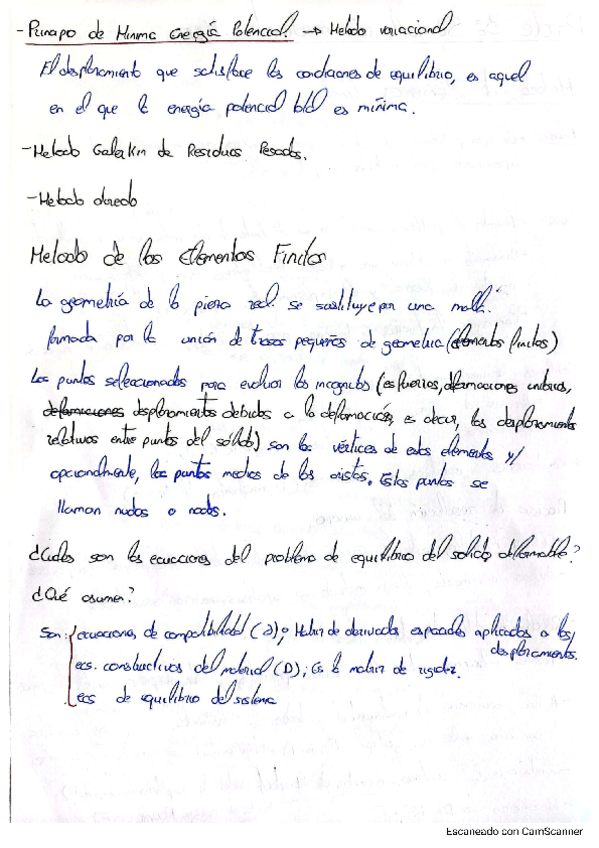 - Principio de Mínima Energía Potencial. → Metodo variacional
El desplazamiento que satisface las condiciones de equilibrio, es aquel
en el que la energía potencial total es mínima.
- Metodo Galerkin de Residuos Pesados.
- Metodo directo
Metodo de los Elementos Finitos
La geometría de la pieza real se sustituye por una malla
formada por la unión de trozos pequeños de geometria (elementos finitos)
Los puntos seleccionados para evaluar las incognitas (esfuerzos, deformaciones unitarias,
deformaciones desplazamientos debidos a la deformación, es decir, los desplazamientos
relativos entre puntos del sólido) son los vértices de estos elementos y/
opcionalmente, los puntos medios de las aristas. Estos puntos se
llaman nudos o nodos.
¿Cuáles son las ecuaciones del problema de equilibrio del solido deformable?
¿Qué asumen?
Son: ecuaciones de compatibilidad (∂); Matriz de derivadas espaciales aplicadas a los
desplazamientos.
ecs. constitutivas del material (D); Es la matriz de rigidez.
ecs de equilibrio del sistema
Escaneado con CamScanner